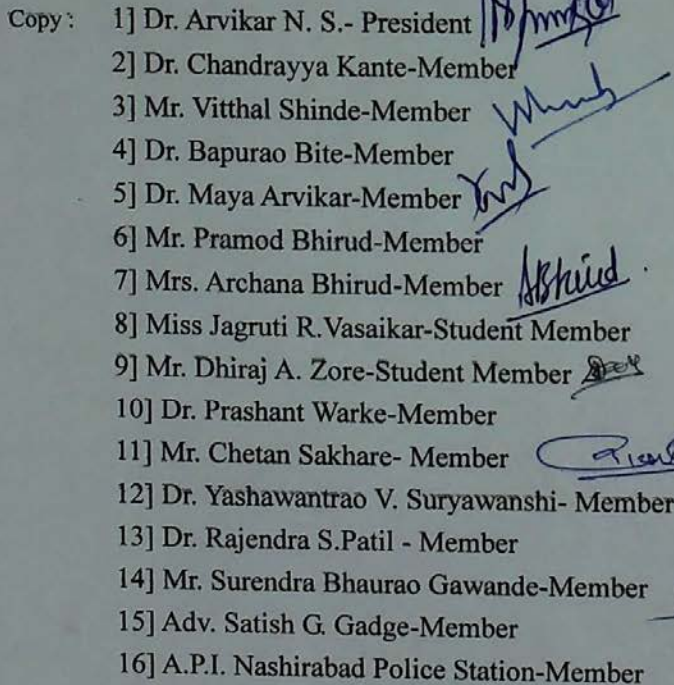 Copy : 1] Dr. Arvikar N. S.- President
2] Dr. Chandrayya Kante-Member
3] Mr. Vitthal Shinde-Member
4] Dr. Bapurao Bite-Member
5] Dr. Maya Arvikar-Member
6] Mr. Pramod Bhirud-Member
7] Mrs. Archana Bhirud-Member ABhirud.
8] Miss Jagruti R.Vasaikar-Student Member
9] Mr. Dhiraj A. Zore-Student Member
10] Dr. Prashant Warke-Member
11] Mr. Chetan Sakhare- Member
12] Dr. Yashawantrao V. Suryawanshi- Member
13] Dr. Rajendra S.Patil - Member
14] Mr. Surendra Bhaurao Gawande-Member
15] Adv. Satish G. Gadge-Member
16] A.P.I. Nashirabad Police Station-Member